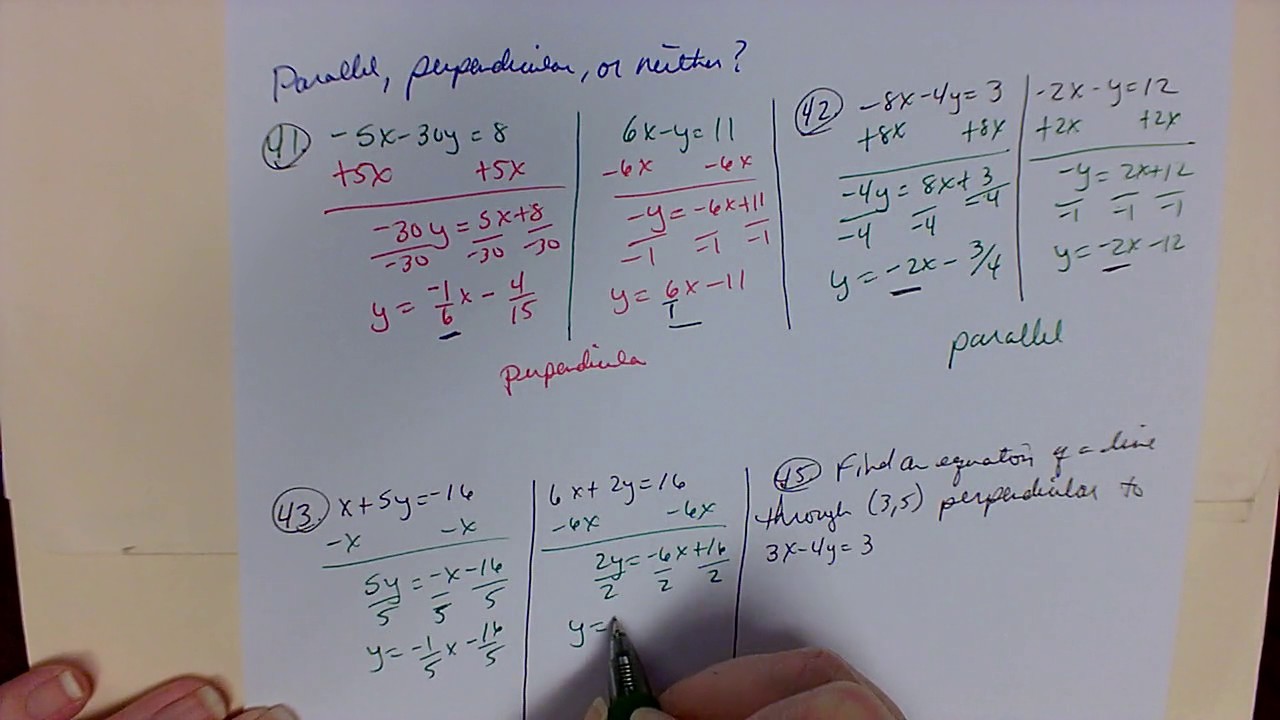 Parallel, perpendicular, or neither?
41. -5x-30y=8
+5x +5x
-30y = 5x+8
-30 -30 -30
y = -1/6 x - 4/15
6x-y=11
-6x -6x
-y = -6x+11
-1 -1 -1
y = 6/1 x-11
perpendicula
42 -8x-4y=3
+8x +8x
-4y = 8x+3
-4 -4 -4
y = -2x - 3/4
-2x-y=12
+2x +2x
-y = 2x+12
-1 -1 -1
y = -2x-12
parallel
43. x+5y=-16
-x -x
5y = -x-16
5 5 5
y = -1/5 x - 16/5
6x+2y=16
-6x -6x
2y = -6x+16
2 2 2
y=
45 Find an equation of a line
through (3,5) perpendicular to
3x-4y=3